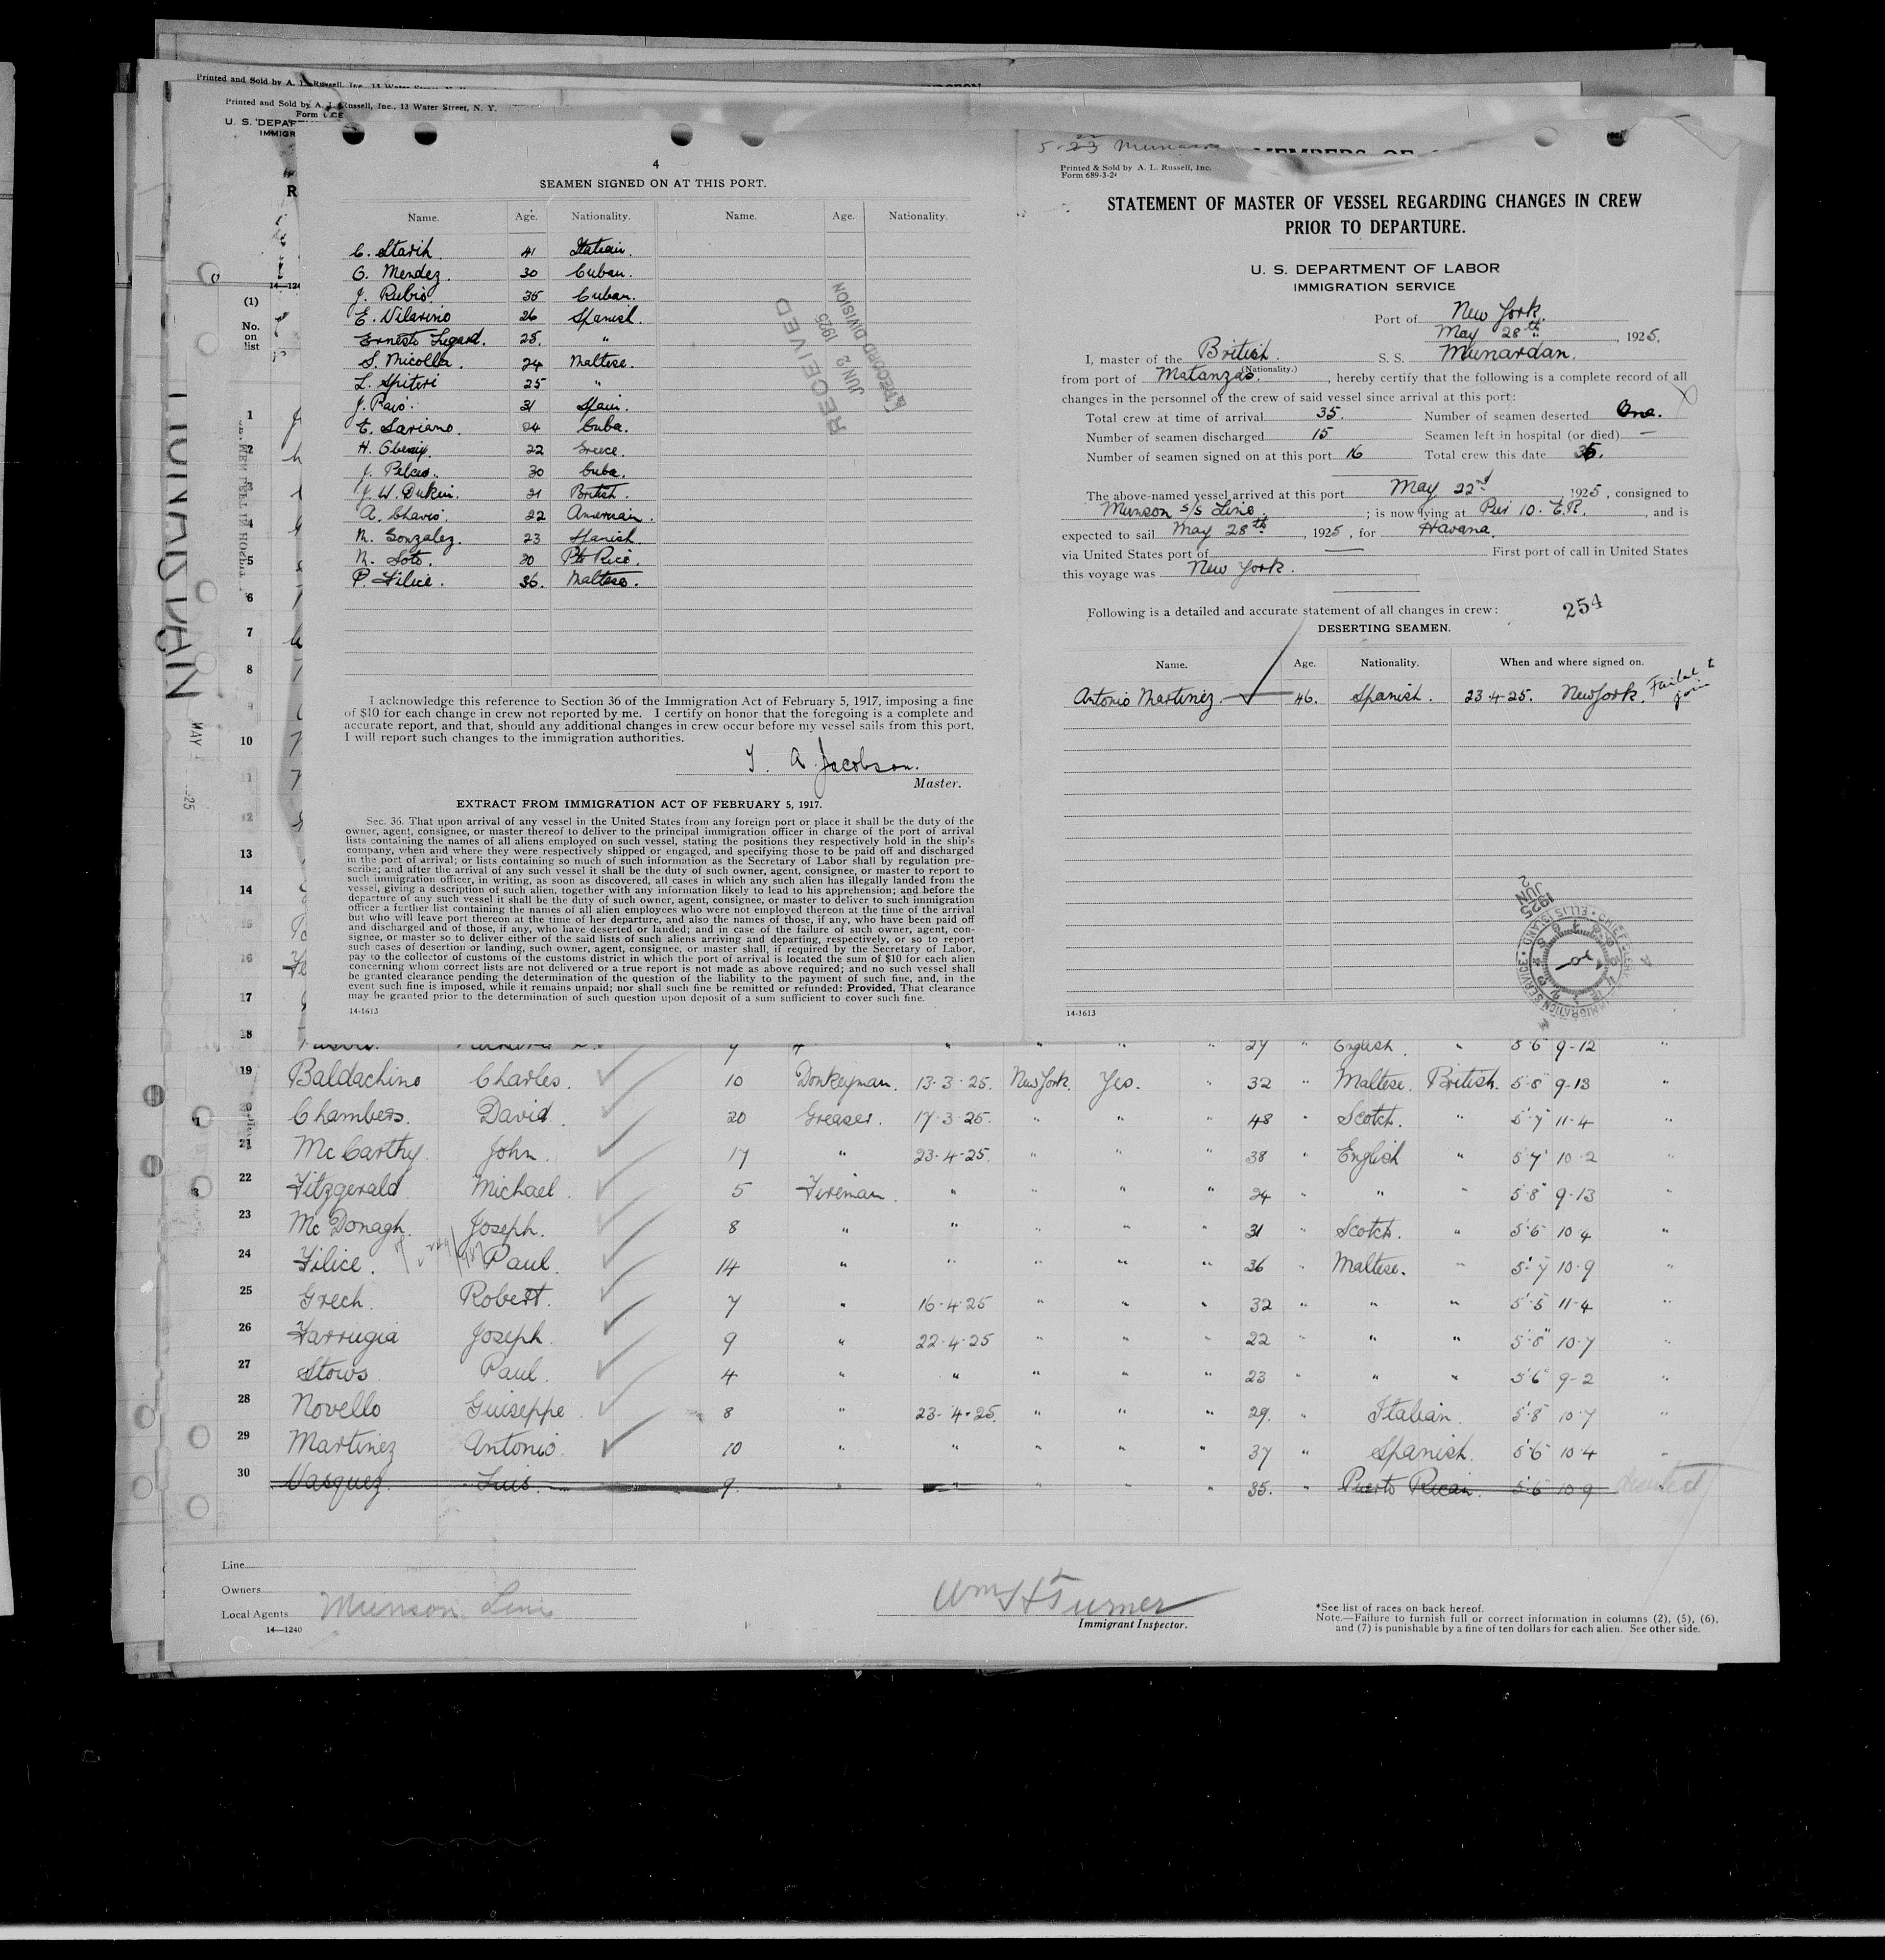 Printed and Sold by A. L. Russell, Inc., 13 Water Street, N. Y.
Printed and Sold by A. L. Russell, Inc., 13 Water Street, N. Y.
Form
U. S. DEPAR
IMMIGR
14—124
(1)
No.
on
list
MUNARDAN
MAY
4
SEAMEN SIGNED ON AT THIS PORT.
Name. Age. Nationality. Name. Age. Nationality.
C. Starih. 41 Italian.
G. Mendez. 30 Cuban.
J. Rubio. 35 Cuban.
E. Vilarino 26 Spanish.
Ernesto Lugard. 25. "
S. Micolla. 24 Maltese.
L. Spiteri 25 "
J. 31 Spain.
E. Soriano. 24 Cuba.
H. 22 Greece.
J. 30 Cuba.
J. W. Dukin. 21 British.
A. Chavis. 22 American.
M. Gonzalez. 23 Spanish.
M. Soto. 20 Pto Rico.
P. Filice. 36. Maltese.
RECEIVED
JUN 2 1925
RECORD DIVISION
I acknowledge this reference to Section 36 of the Immigration Act of February 5, 1917, imposing a fine
of $10 for each change in crew not reported by me. I certify on honor that the foregoing is a complete and
accurate report, and that, should any additional changes in crew occur before my vessel sails from this port,
I will report such changes to the immigration authorities.
A. Jacobson.
Master.
EXTRACT FROM IMMIGRATION ACT OF FEBRUARY 5, 1917.
Sec. 36. That upon arrival of any vessel in the United States from any foreign port or place it shall be the duty of the
owner, agent, consignee, or master thereof to deliver to the principal immigration officer in charge of the port of arrival
lists containing the names of all aliens employed on such vessel, stating the positions they respectively hold in the ship's
company, when and where they were respectively shipped or engaged, and specifying those to be paid off and discharged
in the port of arrival; or lists containing so much of such information as the Secretary of Labor shall by regulation pre-
scribe; and after the arrival of any such vessel it shall be the duty of such owner, agent, consignee, or master to report to
such immigration officer, in writing, as soon as discovered, all cases in which any such alien has illegally landed from the
vessel, giving a description of such alien, together with any information likely to lead to his apprehension; and before the
departure of any such vessel it shall be the duty of such owner, agent, consignee, or master to deliver to such immigration
officer a further list containing the names of all alien employees who were not employed thereon at the time of the arrival
but who will leave port thereon at the time of her departure, and also the names of those, if any, who have been paid off
and discharged and of those, if any, who have deserted or landed; and in case of the failure of such owner, agent, con-
signee, or master so to deliver either of the said lists of such aliens arriving and departing, respectively, or so to report
such cases of desertion or landing, such owner, agent, consignee, or master shall, if required by the Secretary of Labor,
pay to the collector of customs of the customs district in which the port of arrival is located the sum of $10 for each alien
concerning whom correct lists are not delivered or a true report is not made as above required; and no such vessel shall
be granted clearance pending the determination of the question of the liability to the payment of such fine, and, in the
event such fine is imposed, while it remains unpaid; nor shall such fine be remitted or refunded: Provided, That clearance
may be granted prior to the determination of such question upon deposit of a sum sufficient to cover such fine.
14-1613
Printed & Sold by A. L. Russell, Inc.
Form 689-3-24
STATEMENT OF MASTER OF VESSEL REGARDING CHANGES IN CREW
PRIOR TO DEPARTURE.
U. S. DEPARTMENT OF LABOR
IMMIGRATION SERVICE
Port of New York.
May 28th, 1925.
I, master of the British. S. S. Munardan.
(Nationality.)
from port of Matanzas., hereby certify that the following is a complete record of all
changes in the personnel of the crew of said vessel since arrival at this port:
Total crew at time of arrival 35. Number of seamen deserted One.
Number of seamen discharged 15 Seamen left in hospital (or died) —
Number of seamen signed on at this port 16 Total crew this date 35.
The above-named vessel arrived at this port May 22nd 1925, consigned to
Munson s/s Line.; is now lying at Pier 10. E.R., and is
expected to sail May 28th, 1925, for Havana.
via United States port of — First port of call in United States
this voyage was New York.
Following is a detailed and accurate statement of all changes in crew: 254
DESERTING SEAMEN.
Name. Age. Nationality. When and where signed on.
Antonio Martinez. 46. Spanish. 23-4-25. New York. Failed to join
1925 JUN 2
IMMIGRATION SERVICE • ELLIS ISLAND
14-1613
1
2
3
4
5
6
7
8
9
10
11
12
13
14
15
16
17
18 English. " 5'6 9-12
19 Baldachino Charles. 10 Donkeyman. 13-3-25. New York. Yes. " 32 " Maltese. British. 5'8 9-13 "
20 Chambers. David. 20 Greaser. 17-3-25. " " " 48 " Scotch. " 5'7 11-4 "
21 McCarthy. John. 17 " 23-4-25. " " " 38 " English " 5'7 10-2 "
22 Fitzgerald Michael. 5 Fireman. " " " " 24 " " " 5'8 9-13 "
23 McDonagh. Joseph. 8 " " " " " 31 " Scotch. " 5'6 10-4 "
24 Filice. Paul. 14 " " " " " 36 " Maltese. " 5'7 10-9 "
25 Grech. Robert. 7 " 16-4-25 " " " 32 " " " 5'5 11-4 "
26 Farrugia Joseph. 9 " 22-4-25 " " " 22 " " " 5'8" 10-7 "
27 Stows Paul. 4 " " " " " 23 " " " 5'6" 9-2 "
28 Novello Guiseppe 8 " 23-4-25. " " " 29. " Italian. 5'8 10-7 "
29 Martinez Antonio. 10 " " " " " 37 " Spanish. 5'6 10-4 "
30 Vasquez. Luis. 9. " " " " " 35. " Puerto Rican. 5'6 10-9 deserted
Line
Owners
Local Agents Munson Line
14—1240
Wm H Turner
Immigrant Inspector.
*See list of races on back hereof.
Note.—Failure to furnish full or correct information in columns (2), (5), (6),
and (7) is punishable by a fine of ten dollars for each alien. See other side.